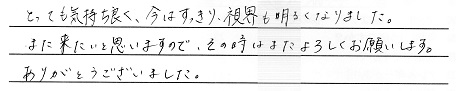 とっても気持ち良く、今はすっきり、視界も明るくなりました。
また来たいと思いますので、その時はまたよろしくお願いします。
ありがとうございました。